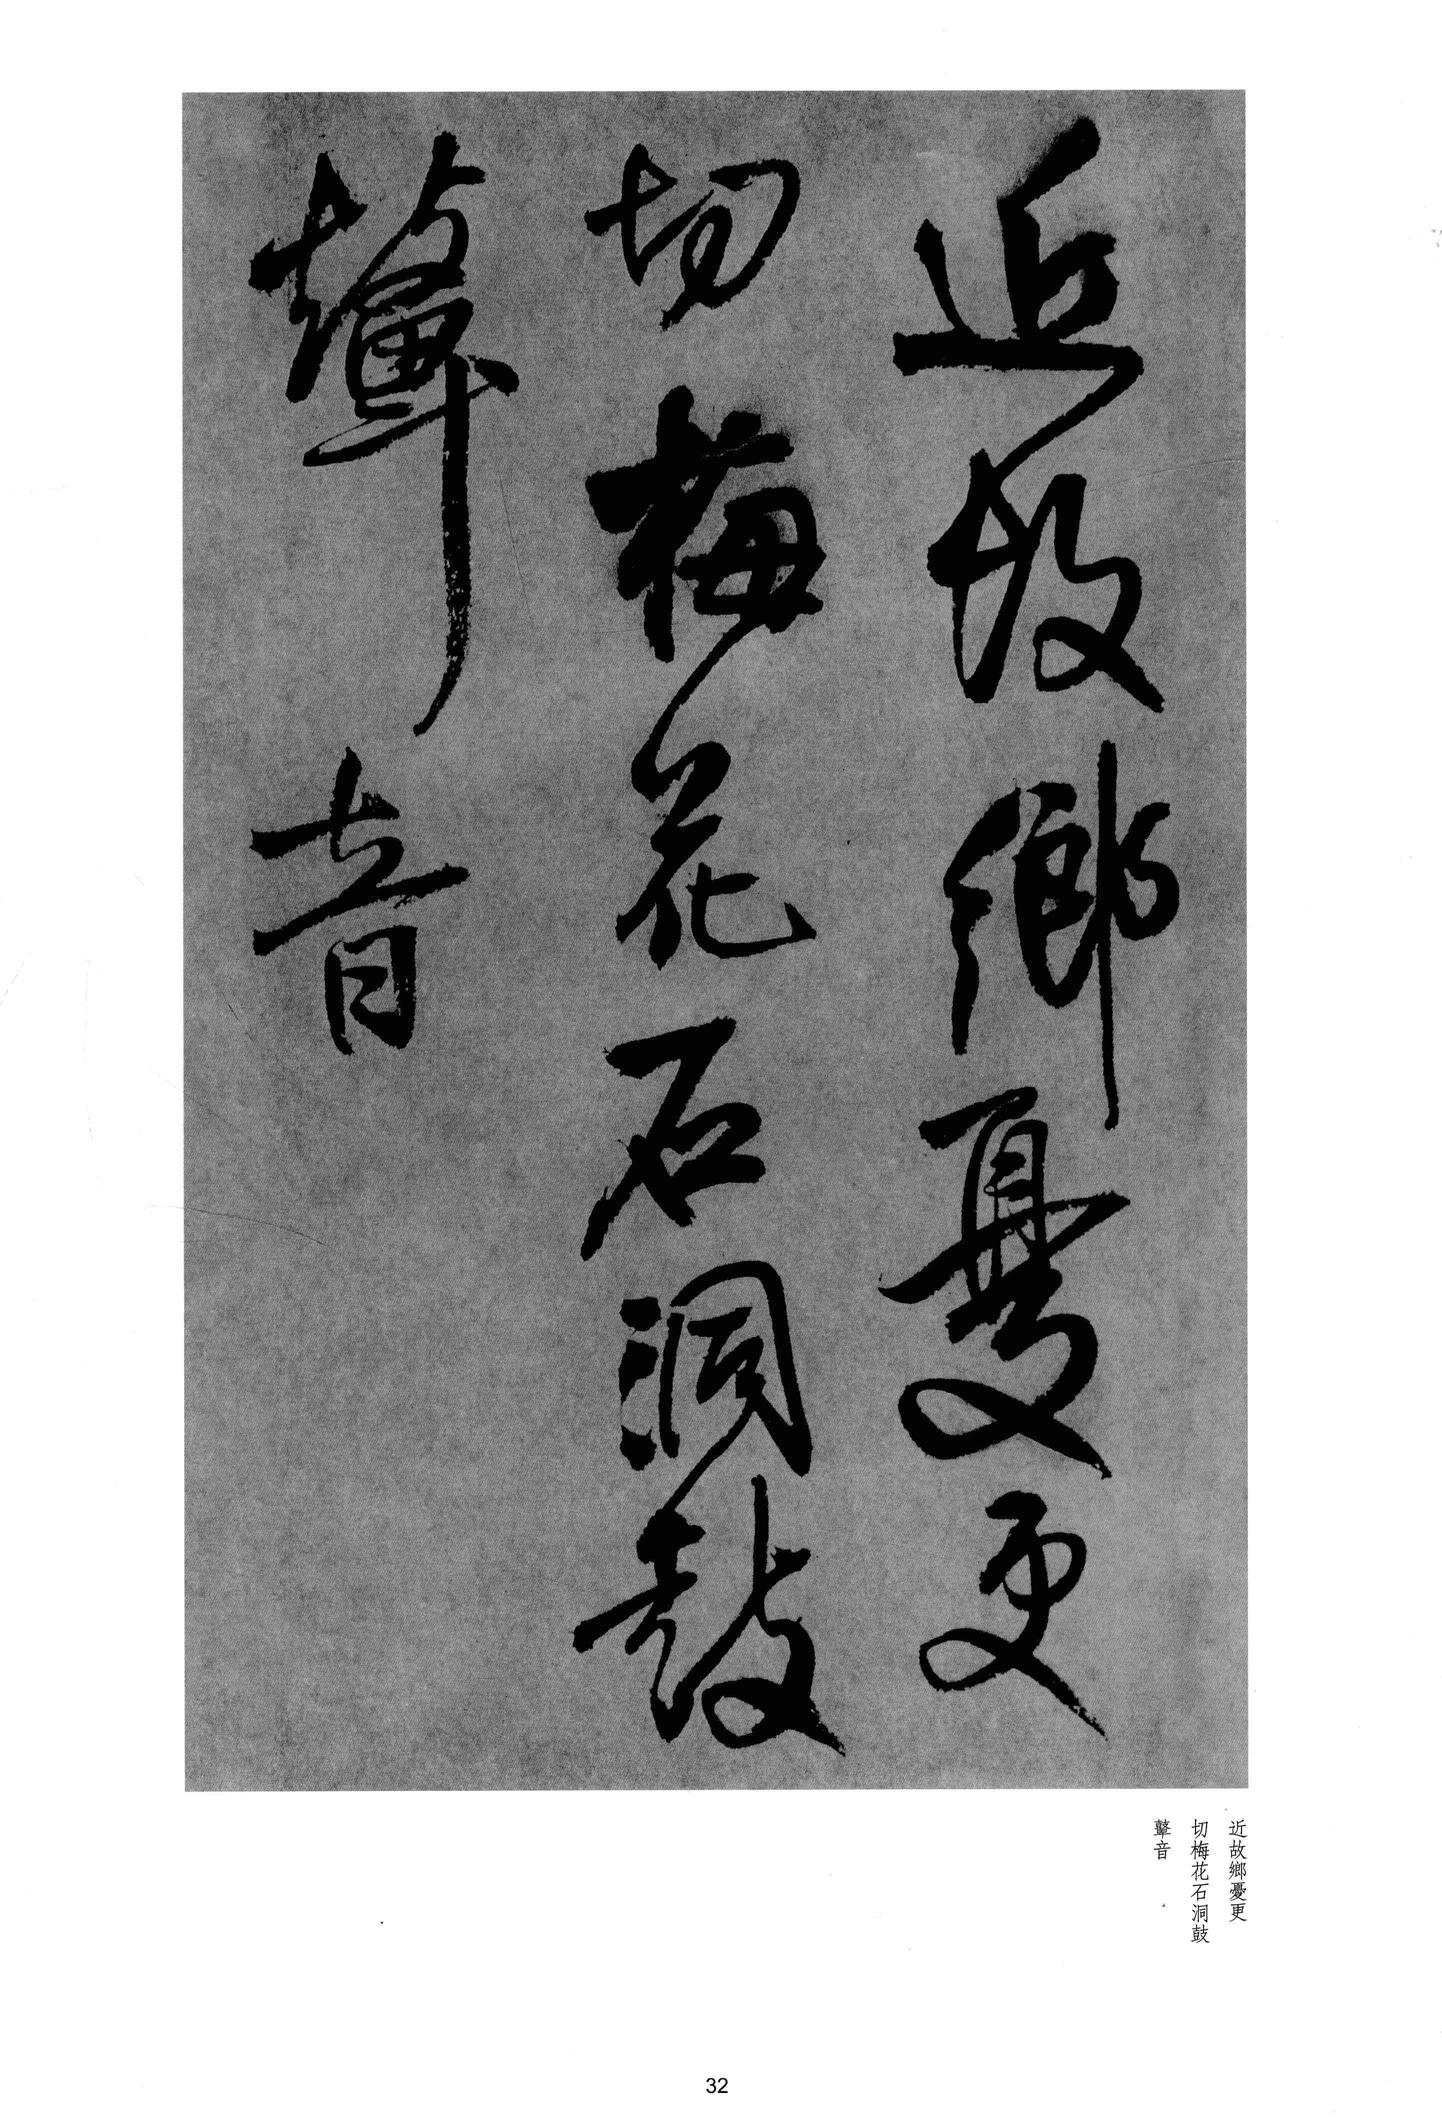 近故鄉憂更
切梅花石洞鼓
鼙音
近故鄉憂更
切梅花石洞鼓
鼙音
32